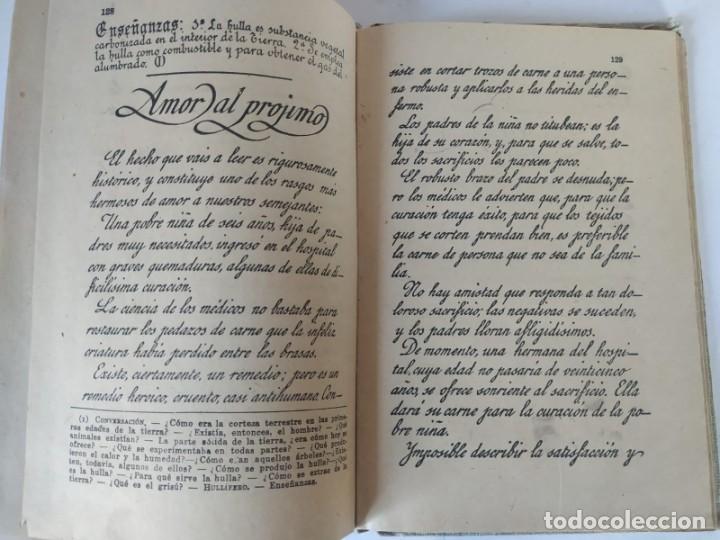 128
Enseñanzas: 3ª La hulla es substancia vegetal
carbonizada en el interior de la Tierra. 2ª Se emplea
la hulla como combustible y para obtener el gas del
alumbrado. (1)
Amor al projimo
El hecho que vais a leer es rigurosamente
histórico, y constituye uno de los rasgos más
hermosos de amor a nuestros semejantes:
Una pobre niña de seis años, hija de pa-
dres muy necesitados, ingresó en el hospital
con graves quemaduras, algunas de ellas de di-
ficilísima curación.
La ciencia de los médicos no bastaba para
restaurar los pedazos de carne que la infeliz
criatura había perdido entre las brasas.
Existe, ciertamente, un remedio; pero es un
remedio heroico, cruento, casi antihumano. Con-
(1) CONVERSACIÓN. — ¿Cómo era la corteza terrestre en las prime-
ras edades de la tierra? — ¿Existía, entonces, el hombre? — ¿Qué
animales existían? — La parte sólida de la tierra, ¿era cómo hoy se
ofrece? — ¿Qué se experimentaba en todas partes? — ¿Qué produ-
jeron el calor y la humedad?—¿Cómo eran aquellos árboles?—¿Exis-
ten, todavía, algunos de ellos? — ¿Cómo se produjo la hulla? — ¿Qué
es la hulla? — ¿Para qué sirve la hulla? — ¿Cómo se extrae de la
tierra? — ¿Qué es el grisú? — HULLÍFERO. — Enseñanzas.
129
siste en cortar trozos de carne a una perso-
na robusta y aplicarlos a las heridas del en-
fermo.
Los padres de la niña no titubean; es la
hija de su corazón, y, para que se salve, to-
dos los sacrificios les parecen poco.
El robusto brazo del padre se desnuda; pe-
ro los médicos le advierten que, para que la
curación tenga éxito, para que los tejidos
que se corten prendan bien, es preferible
la carne de persona que no sea de la fami-
lia.
No hay amistad que responda a tan do-
loroso sacrificio; las negativas se suceden,
y los padres lloran afligidísimos.
De momento, una hermana del hospi-
tal, cuya edad no pasaría de veinticinco
años, se ofrece sonriente al sacrificio. Ella
dará su carne para la curación de la po-
bre niña.
Imposible describir la satisfacción y
todocoleccion.net